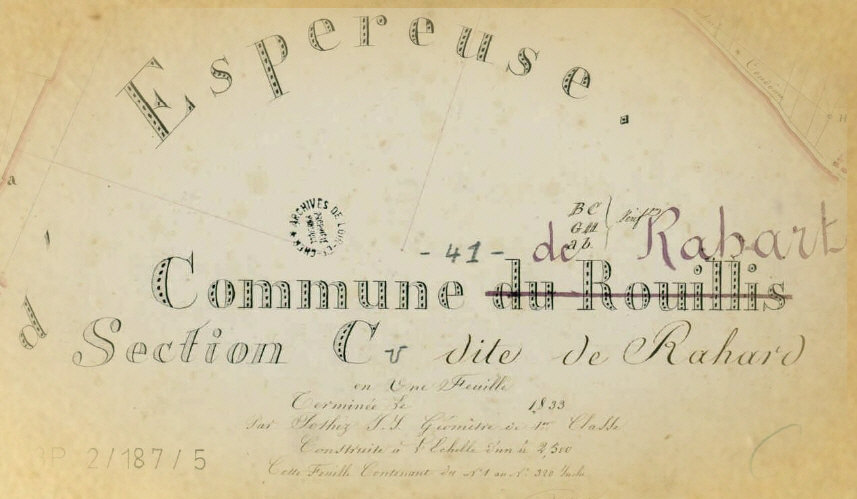 Espereuse.
a
H
ARCHIVES DE LOIR-ET-CHER
B C
G H
a b
- 41 - de Rahart
d'
Commune du Rouillis
Section C v dite de Rahard
en Une Feuille
Terminée le 1833
Par J. L. Géomètre de 1re Classe
Construite à l'Echelle d'un à 2,500
Cette Feuille Contenant du N° 1 au N° 320
3P 2/187/5